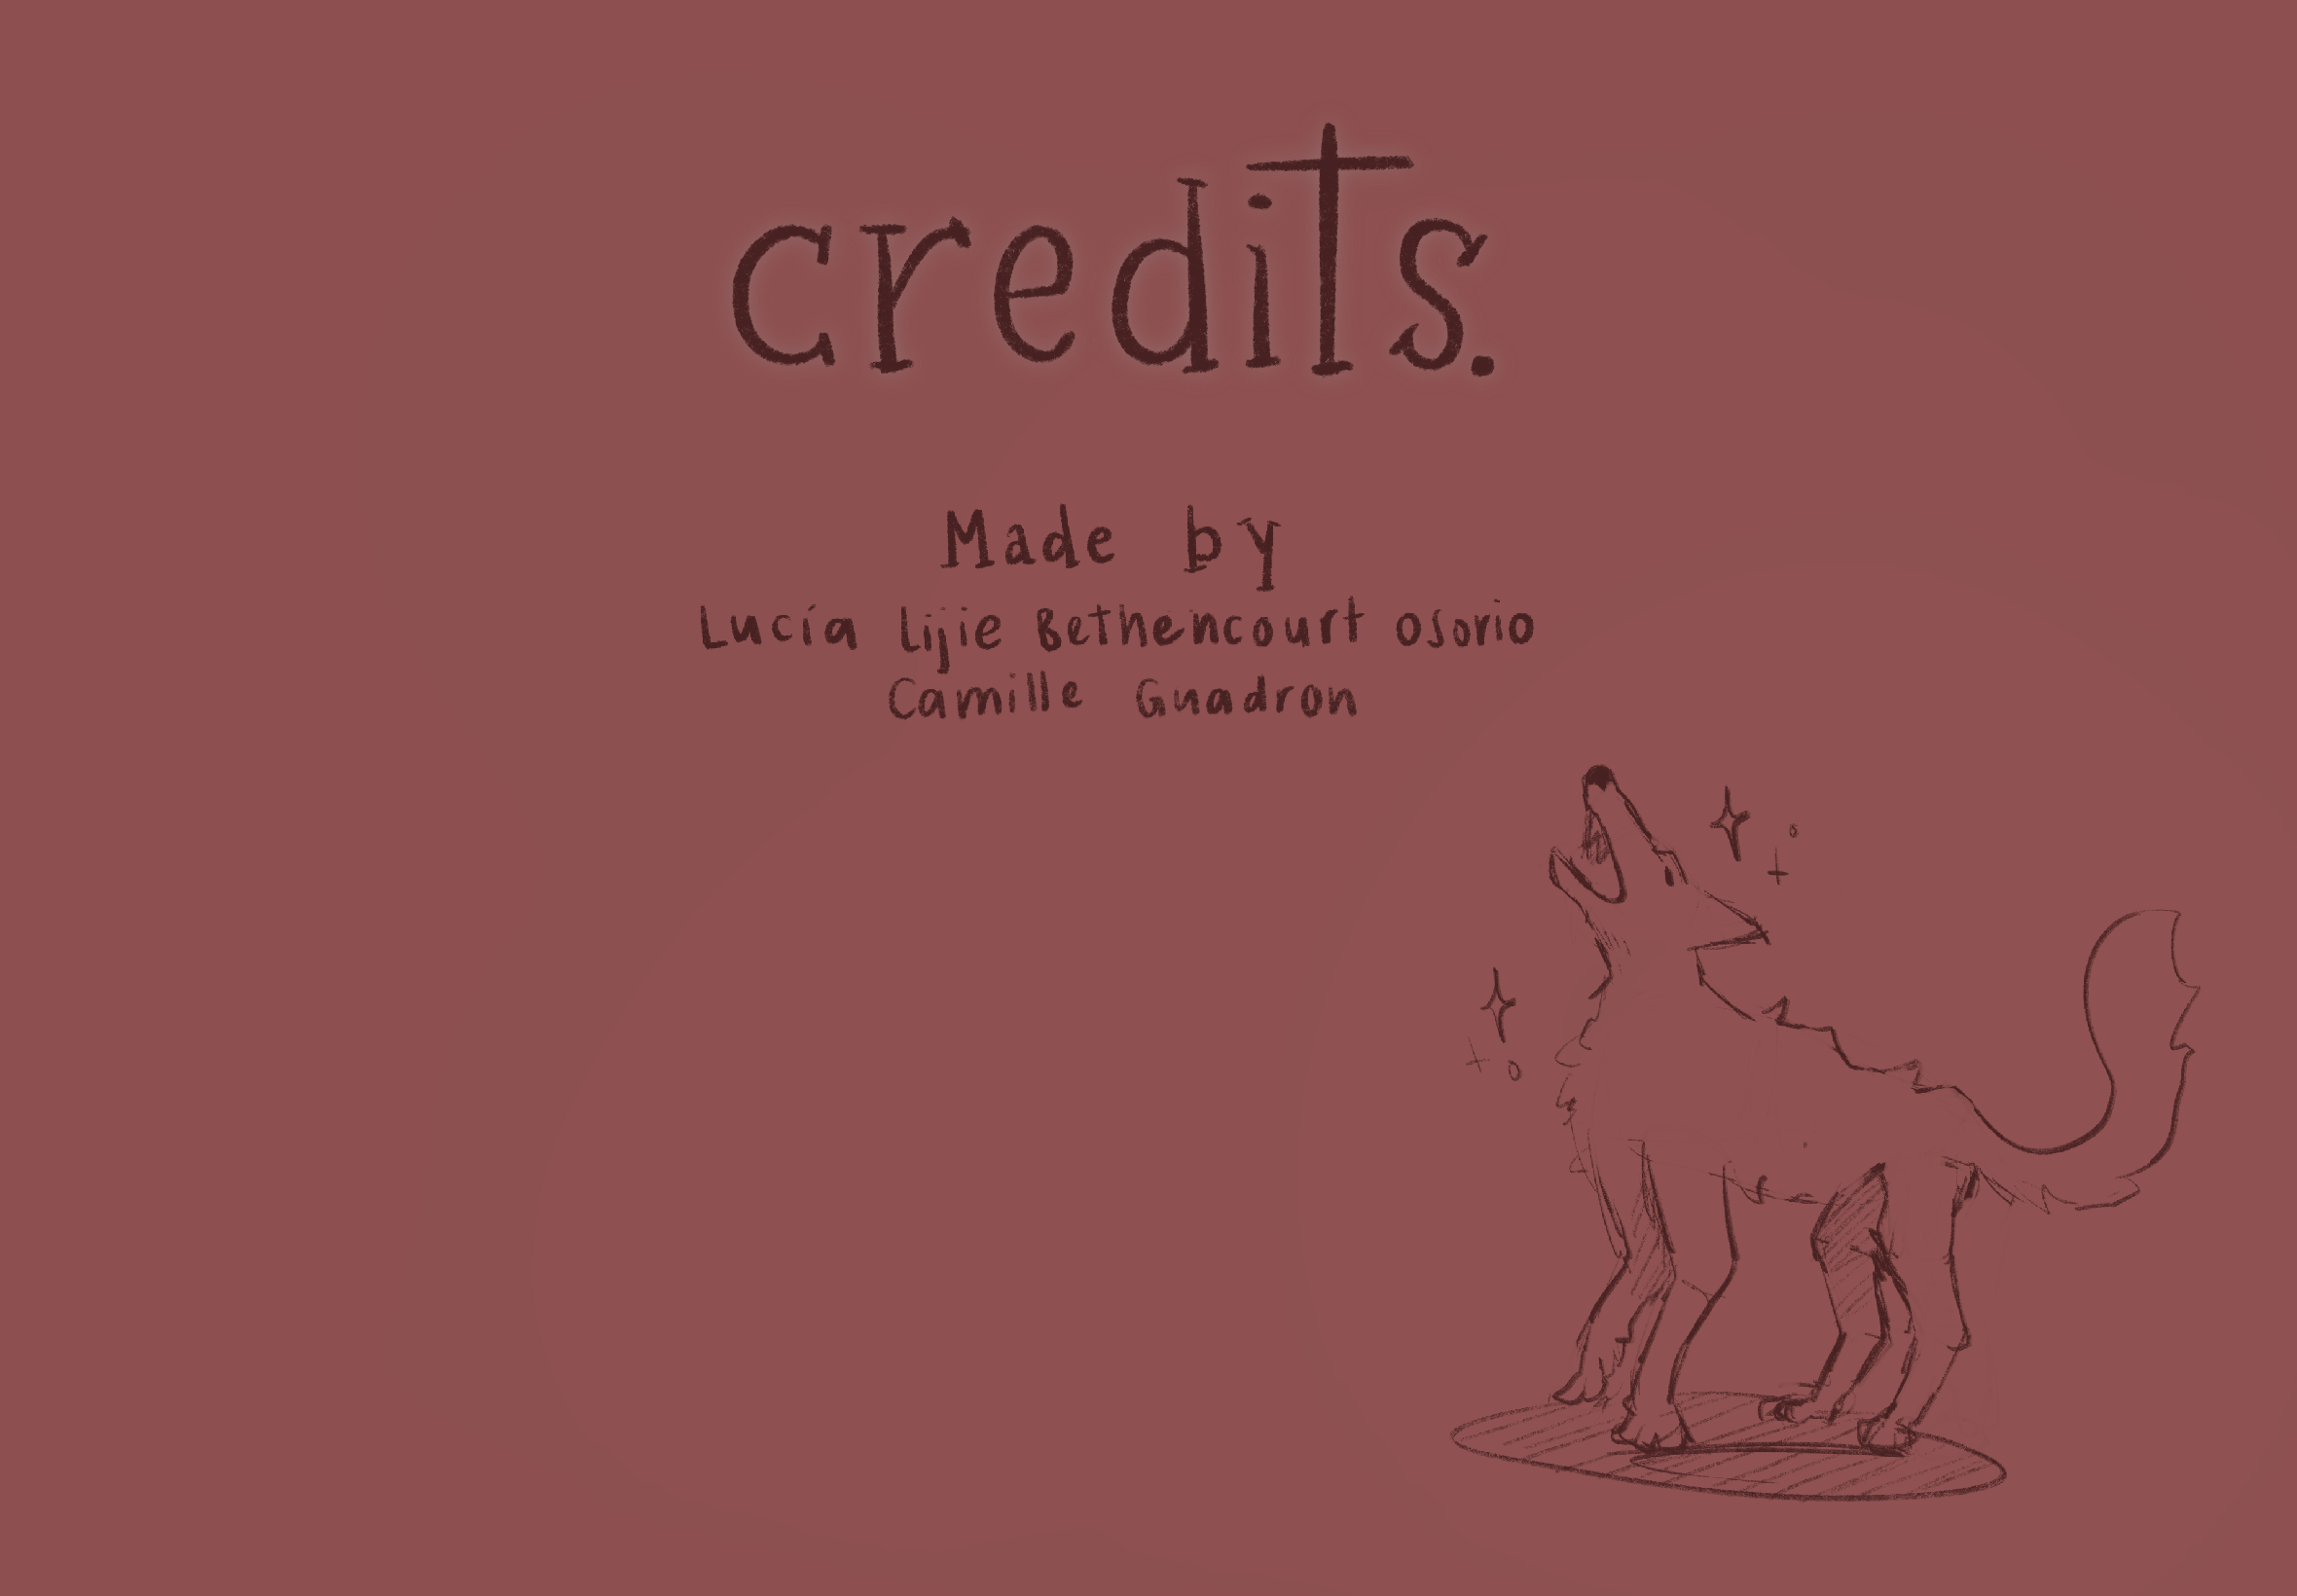 credits.
Made by
Lucía Lijie Bethencourt Osorio
Camille Guadron